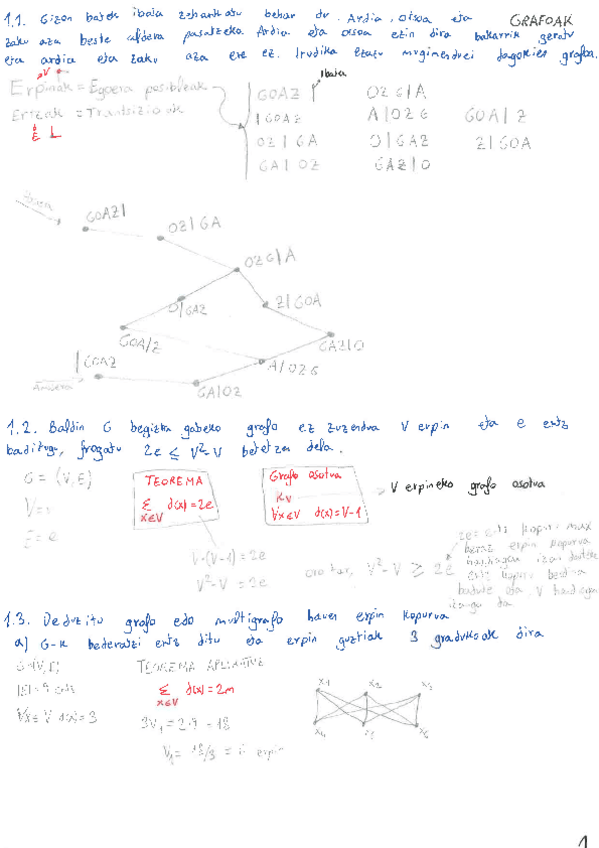 GRAFOAK
1.1. Gizon batek ibaia zeharkatu behar du. Ardia, otsoa eta
zaku aza beste aldera pasatzeko. Ardia eta otsoa ezin dira bakarrik geratu
eta ardia eta zaku aza ere ez. Irudika ezazu mugimenduei dagokien grafoa.
V
Erpinak = Egoera posibleak
Ertzak = Trantsizioak
E L
Ibaia
GOAZ |
| GOAZ
OZ | GA
GA | OZ
OZG | A
A | OZG
O | GAZ
GAZ | O
GOA | Z
Z | GOA
Hasiera
GOAZ|
OZ | GA
OZG | A
O | GAZ
Z | GOA
GOA/Z
GAZ | O
|GOAZ
A | OZG
Amaiera
GA | OZ
1.2. Baldin G begizta gabeko grafo ez zuzendua V erpin eta e ertz
baditugu, frogatu 2e ≤ V²-V betetzen dela.
G = (V,E)
V = v
E = e
TEOREMA
Σ d(x) = 2e
x∈V
Grafo osotua
Kv
∀x∈V d(x) = V-1
> V erpineko grafo osotua
V·(V-1) = 2e
V²-V = 2e
V²-V ≥ 2e
2e = ertz kopuru max
beraz erpin kopurua
ertz kopuru berdina
badute eta V handiagoa
izango da
1.3. Deduzitu grafo edo multigrafo hauen erpin kopurua
a) G-k bederatzi ertz ditu eta erpin guztiak 3 gradukoak dira
G = (V,E)
|E| = 9 ertz
∀x∈V d(x) = 3
TEOREMA APLIKATUZ
Σ d(x) = 2m
x∈V
3V₁ = 2·9 = 18
V₁ = 18/3 = 6 erpin
x1 x2 x3
x4 x5 x6
1